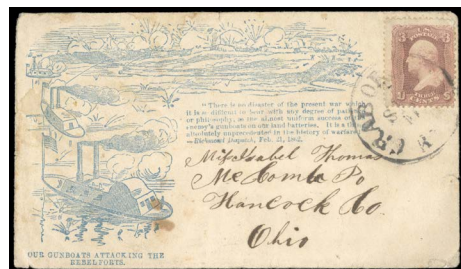 "There is no disaster of the present war
it is difficult to bear with any degree of
or philosophy, as the almost uniform success of
enemy's gunboats on our land batteries. It is
absolutely unprecedented in the history of warfare
—Richmond Dispatch, Feb. 21, 1862.
3 3
CRAB O
Isabel Thomas
McComb Po
Hancock Co.
Ohio
OUR GUNBOATS ATTACKING THE
REBEL FORTS.